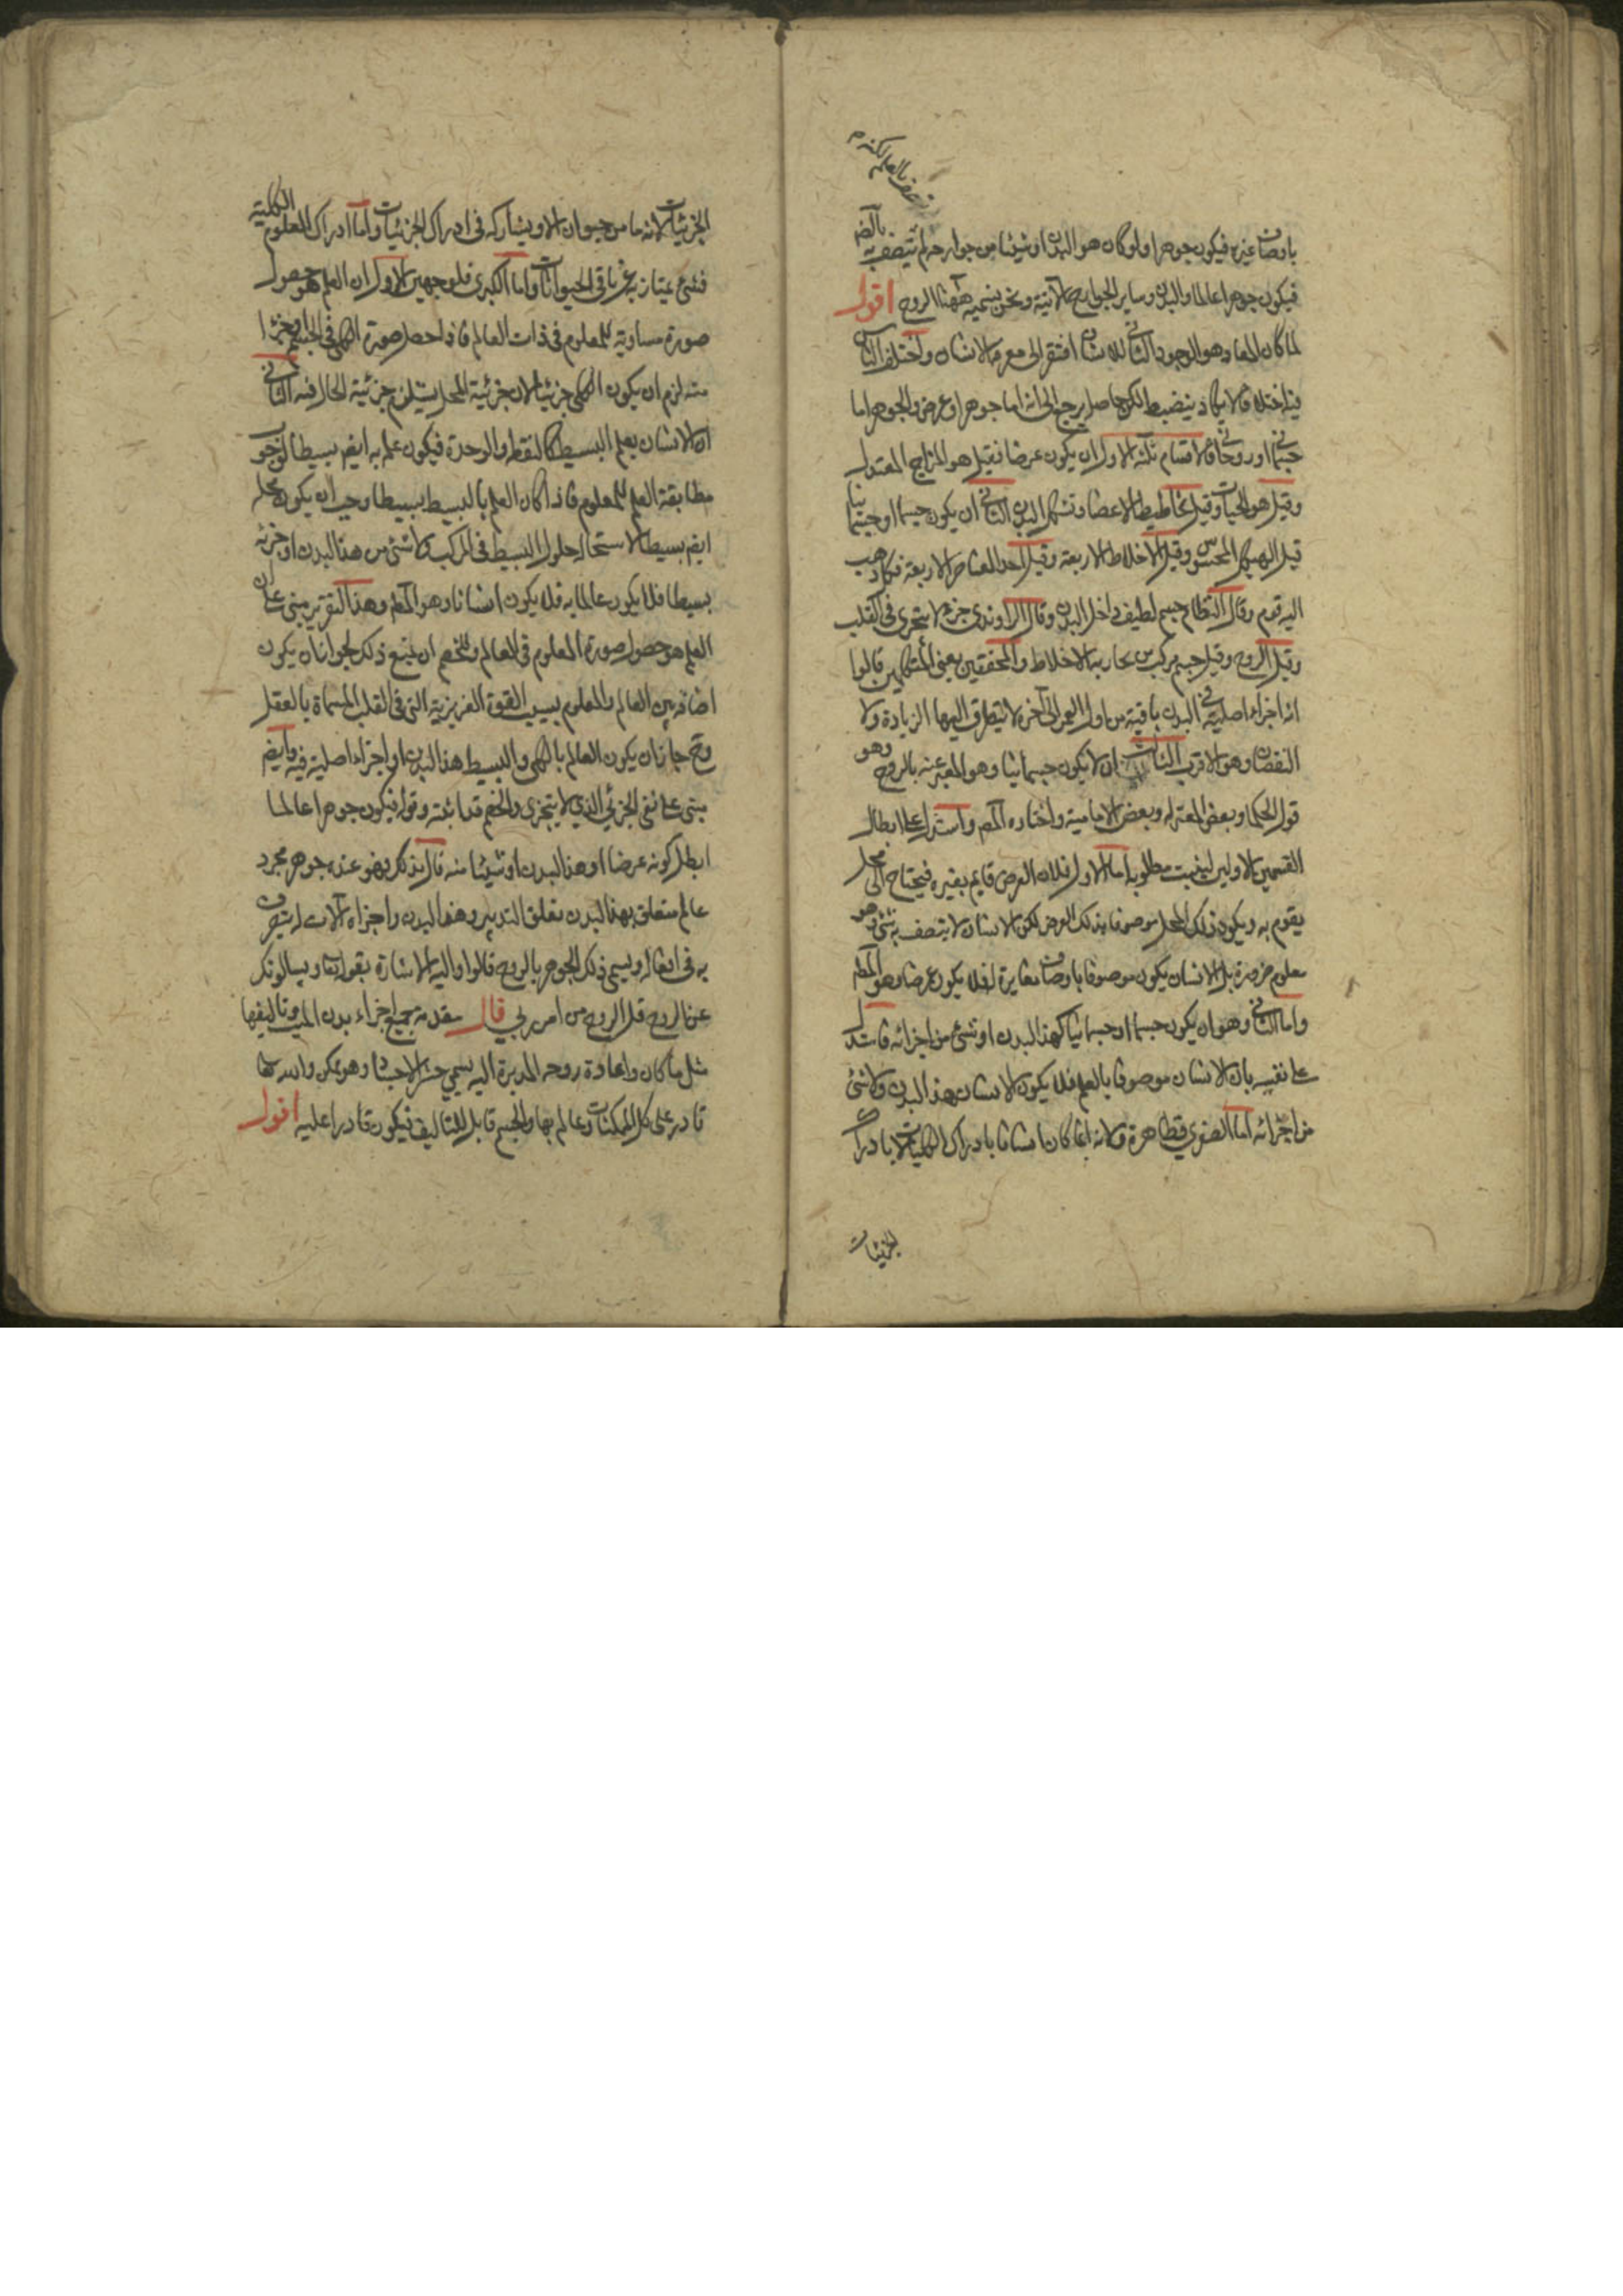 يتصف بالعلم لكنه م
باوصاف غيره فيكون جوهرا ولو كان هو البدن او شيئا من جوارحه لم يتصف به بالضم
فيكون جوهرا عالما والبدن وساير الجوارح الآتية ونحن نسميه ههنا الروح اقول
لما كان المعاد وهو الوجود الثاني للانسان افتقر الى معرفة الانسان واختلف الناس
فيه اختلافا لا يكاد ينضبط لكن حاصله يرجع الى انه اما جوهر او عرض والجوهر اما
جسماني او روحاني فالاقسام ثلثة الاول ان يكون عرضا فقيل هو المزاج المعتدل
وقيل هو الحيات وقيل تخاطيط الاعضا وتشكل البدن الثاني ان يكون جسما او جسمانيا
قيل الهيكل المحسوس وقيل الاخلاط الاربعة وقيل احد العناصر الاربعة فكل ذهب
اليه قوم وقال النظام جسم لطيف داخل البدن وقال الراوندي جزء لا يتجزى في القلب
وقيل الروح وقيل جسم مركب من بخارية الاخلاط والمحققين يعني المتكلمين قالوا
انه اجزاء اصلية في البدن باقية من اول العمر الى آخره لا يتطرق اليها الزيادة ولا
النقصان وهو الاقرب الثالث ان لا يكون جسمانيا وهو المعبر عنه بالروح وهو
قول الحكما وبعض المعتزلة وبعض الامامية واختاره المص واستدل على ابطال
القسمين الاولين ليثبت مطلوبه اما الاول فلان العرض قايم بغيره فيحتاج الى محل
يقوم به ويكون ذلك المحل موصوفا بذلك العرض لكن الانسان لا يتصف به شئ وهو
معلوم ضرورة بل الانسان يكون موصوفا باوصاف مغايرة له فلا يكون عرضا وهو المط
واما الثاني وهو ان يكون جسما او جسمانيا كهذا البدن او شئ من اجزائه فاستدل
على نفيه بان الانسان موصوف بالعلم فلا يكون الانسان هذا البدن ولا شئ
من اجزائه اما الصغرى فظاهرة ولانه انما كان انسانا بادراك الكليات لا بادراك
الجزئيات
الجزئيات لانه ما من حيوان الا ويشاركه في ادراك الجزئيات واما ادراك المعلوم الكلية
فشئ يمتاز به عن باقي الحيوانات واما الكبرى فلوجهين الاول ان العلم هو حصول
صورة مساوية للمعلوم في ذات العالم فاذا حصل صورة الكلي في الجسم او جزءا
منه لزم ان يكون الكلي جزئيا لان جزئية المحل يستلزم جزئية الحال فيه الثاني
ان الانسان يعلم البسيط كالنقطة والوحدة فيكون علمه به ايضا بسيطا لوجوب
مطابقة العلم للمعلوم فاذا كان العلم بالبسيط بسيطا وجب ان يكون محله
ايضا بسيطا لاستحالة حلول البسيط في المركب ولا شئ من هذا البدن او جزئه
بسيطا فلا يكون عالما به فلا يكون انسانا وهو المط وهذا التقرير مبنى على ان
العلم هو حصول صورة المعلوم في العالم وللخصم ان يمنع ذلك لجواز ان يكون
اضافة بين العالم والمعلوم بسبب القوة الغريزية التي في القلب المسماة بالعقل
وح جاز ان يكون العالم بالكلي والبسيط هذا البدن او اجزاء اصلية فيه وايضا
مبنى على نفي الجزئ الذي لا يتجزى والخصم قد اثبته وقوله فيكون جوهرا عالما
ابطل كونه عرضا او هذا البدن او شيئا منه قال بذلك فهو عنده جوهر مجرد
عالم متعلق بهذا البدن تعلق التدبير وهذا البدن واجزاءه آلات له يتصرف
به في افعاله ويسمى ذلك الجوهر بالروح قالوا واليه الاشارة بقوله تعا ويسالونك
عن الروح قل الروح من امر ربي قال مقدمة جميع اجزاء بدن الميت وتاليفها
مثل ما كان واعادة روحه المدبرة اليه يسمى حشر الاجساد وهو ممكن والله تعا
قادر على كل الممكنات وعالم بها والجسم قابل للتاليف فيكون قادرا عليه اقول